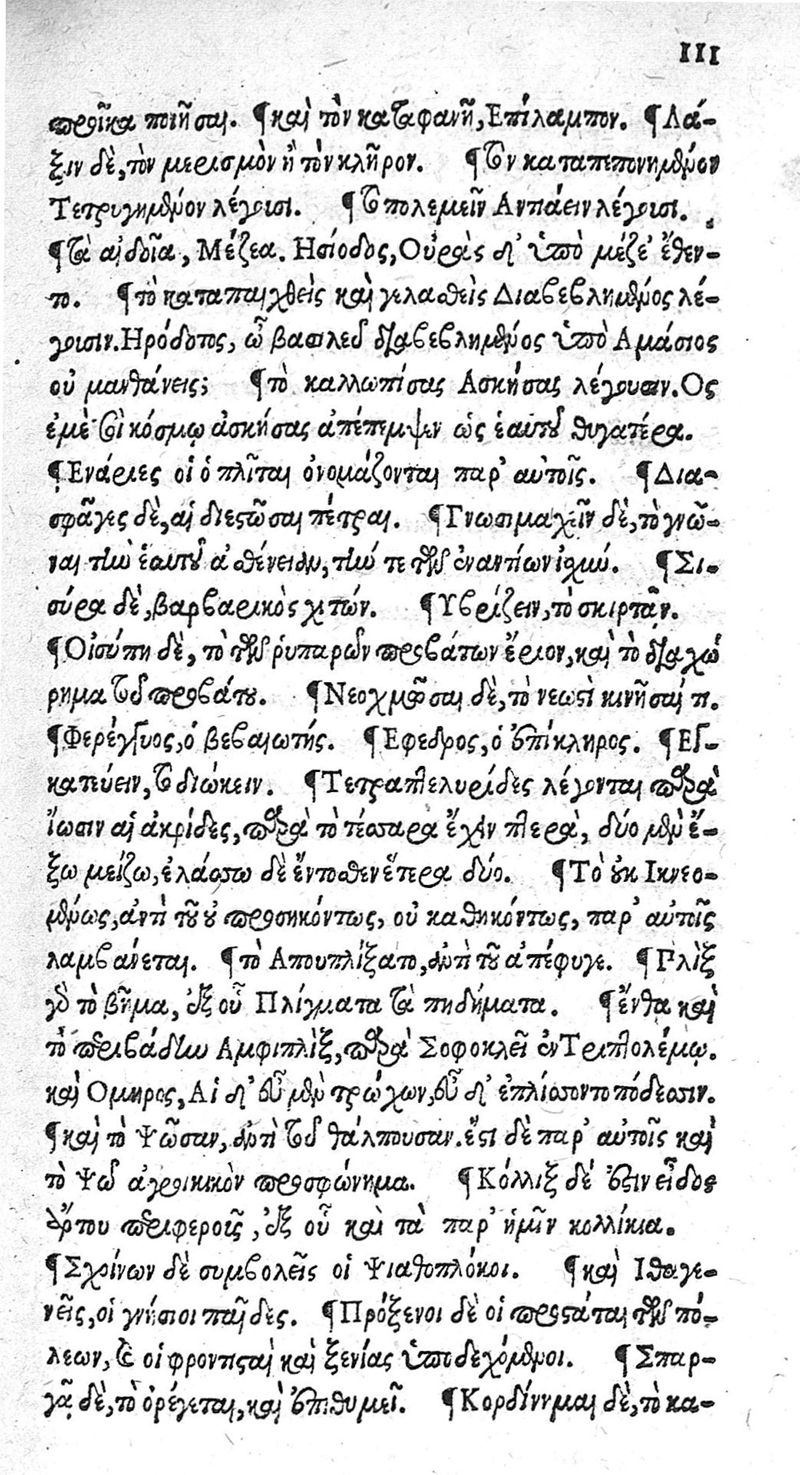 111
προῖκα ποιῆσαι. ¶καὶ τὸν καταφανῆ, Επίλαμπον. ¶Λά-
ξιν δὲ, τὸν μερισμὸν ἢ τὸν κλῆρον. ¶τὸν καταπεπονημένον
Τετρυγημένον λέγουσι. ¶τὸ πολεμεῖν Αντιάειν λέγουσι.
¶τὰ αἰδοῖα, Μέζεα. Ησίοδος, Οὐρὰς δ' ὑπὸ μέζε' ἔθεν-
το. ¶τὸ καταπαιχθεὶς καὶ γελαθεὶς Διαβεβλημένος λέ-
γουσιν. Ηρόδοτος, ὦ βασιλεῦ διαβεβλημένος ὑπὸ Αμάσιος
οὐ μανθάνεις; ¶τὸ καλλωπίσας Ασκήσας λέγουσιν. Ος
ἐμὲ σὺ κόσμῳ ἀσκήσας ἀπέπεμψεν ὡς ἑαυτοῦ θυγατέρα.
¶Ενάριες οἱ ὁπλῖται ὀνομάζονται παρ' αὐτοῖς. ¶Δια-
σφᾶγες δὲ, αἱ διεστῶσαι πέτραι. ¶Γνωσιμαχεῖν δὲ, τὸ γνῶ-
ναι τὴν ἑαυτοῦ ἀσθένειαν, τήν τε τῶν ἐναντίων ἰσχύν. ¶Σι-
σύρα δὲ, βαρβαρικὸς χιτών. ¶Υβρίζειν, τὸ σκιρτᾶν.
¶Οἰσύπη δὲ, τὸ τῶν ῥυπαρῶν προβάτων ἔριον, καὶ τὸ διαχώ
ρημα τοῦ προβάτου. ¶Νεοχμῶσαι δὲ, τὸ νεωστὶ κινῆσαί τι.
¶Φερέγγυος, ὁ βεβαιωτής. ¶Εφεδρος, ὁ ἐπίκληρος. ¶Εγ-
καπύειν, τὸ διώκειν. ¶Τετραπτελυρίδες λέγονται παρὰ
ἴωσιν αἱ ἀκρίδες, παρὰ τὸ τέσσαρα ἔχειν πτερὰ, δύο μὲν ἔ-
ξω μείζω, ἐλάσσω δὲ ἔντοθεν ἕτερα δύο. ¶Τὸ οὐκ Ικνεο-
μένως, ἀντὶ τοῦ οὐ προσηκόντως, οὐ καθηκόντως, παρ' αὐτοῖς
λαμβάνεται. ¶τὸ Απουπλίξατο, ἀντὶ τοῦ ἀπέφυγε. ¶Πλὶξ
γὰρ τὸ βῆμα, ἐξ οὗ Πλίγματα τὰ πηδήματα. ¶ἔνθα καὶ
τὸ περιβάδην Αμφιπλὶξ, παρὰ Σοφοκλεῖ ἐν Τριπτολέμῳ.
καὶ Ομηρος, Αἱ δ' εὖ μὲν τρώχων, εὖ δ' ἐπλίσσοντο πόδεσσιν.
¶καὶ τὸ Ψῶσαν, ἀντὶ τοῦ θάλπουσαν. ἔστι δὲ παρ' αὐτοῖς καὶ
τὸ Ψῶ ἀγροικικὸν προσφώνημα. ¶Κόλλιξ δέ ἐστιν εἶδος
ἄρτου περιφεροῦς, ἐξ οὗ καὶ τὰ παρ' ἡμῖν κολλίκια.
¶Σχοίνων δὲ συμβολεῖς οἱ Ψιαθοπλόκοι. ¶καὶ Ιθαγε-
νεῖς, οἱ γνήσιοι παῖδες. ¶Πρόξενοι δὲ οἱ προστάται τῶν πό-
λεων, καὶ οἱ φροντισταὶ καὶ ξενίας ὑποδεχόμενοι. ¶Σπαρ-
γᾷ δὲ, τὸ ὀρέγεται, καὶ ἐπιθυμεῖ. ¶Κορδίννμαι δὲ, τὸ κα-